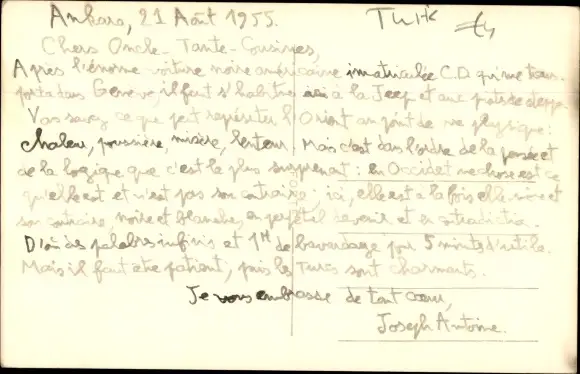 Ankara, 21 Août 1955. Turk
Chers Oncle - Tante - Cousines,
Après l'énorme voiture noire américaine immatriculée C.D. qui me trans-
porta dans Genève, il faut s'habituer ici à la Jeep et aux pistes de steppe.
Vous savez ce que peut représenter l'Orient au point de vue physique:
chaleur, poussière, misère, lenteur. Mais c'est dans l'ordre de la pensée et
de la logique que c'est le plus surprenant: en Occident une chose est ce
qu'elle est et n'est pas son contraire; ici, elle est à la fois elle-même et
son contraire, noire et blanche, en perpétuel devenir et en contradiction.
D'où des palabres infinis et 1H de bavardage pour 5 minutes d'utile.
Mais il faut être patient, puis les Turcs sont charmants.
Je vous embrasse de tout cœur,
Joseph Antoine.